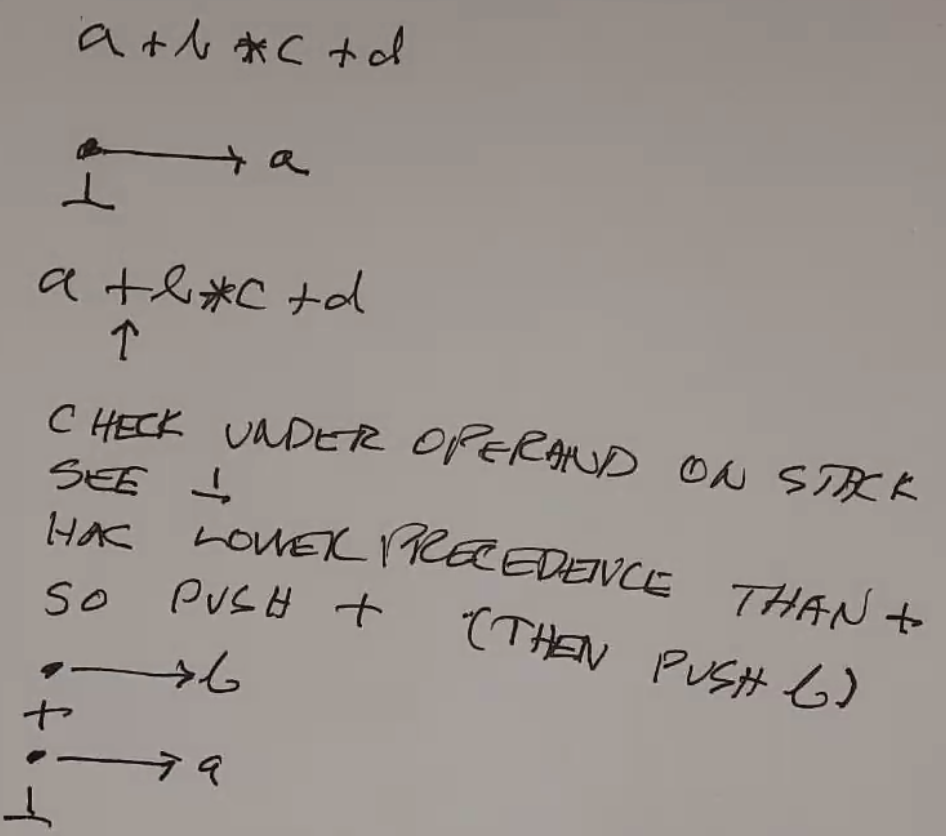 a + b * c + d
• → a
⊥
a + b * c + d
↑
CHECK UNDER OPERAND ON STACK
SEE ⊥
HAS LOWER PRECEDENCE THAN +
SO PUSH + (THEN PUSH b)
• → b
+
• → a
⊥